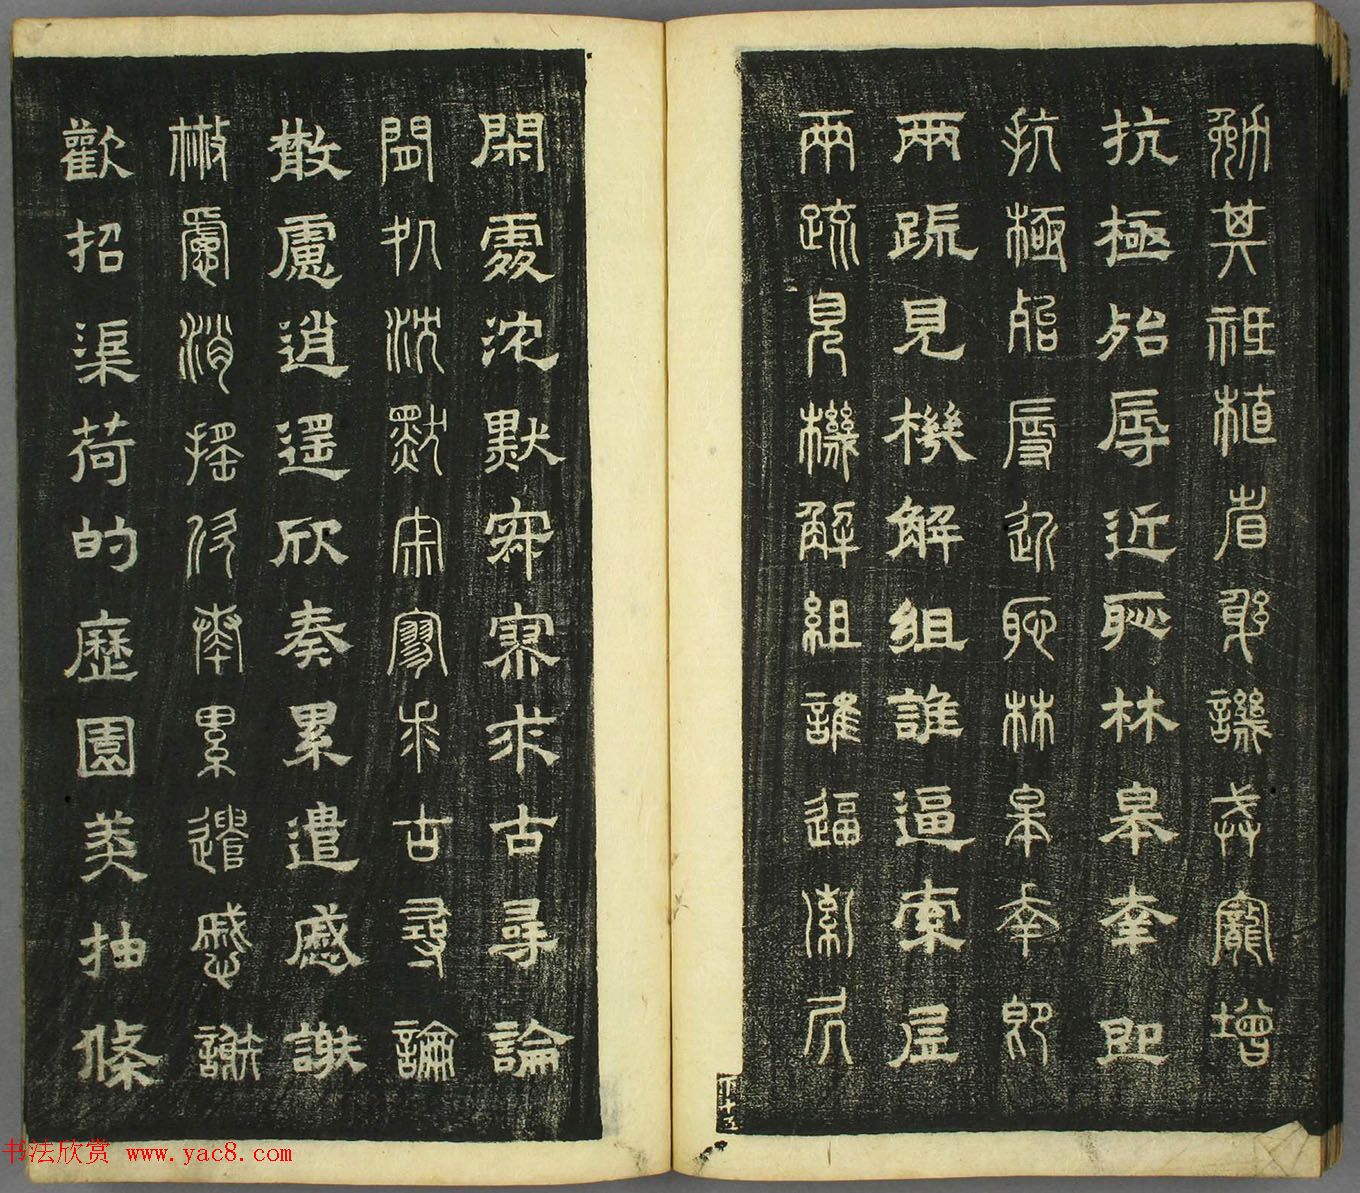 勉其祗植省躬譏誡寵增
抗極殆辱近恥林皋幸即
抗極殆辱近恥林皋幸即
兩疏見機解組誰逼索居
兩疏見機解組誰逼索居
下十五
閑處沈默寂寥求古尋論
閑處沈默寂寥求古尋論
散慮逍遙欣奏累遣慼謝
散慮逍遙欣奏累遣慼謝
歡招渠荷的歷園莽抽條
书法欣赏 www.yac8.com